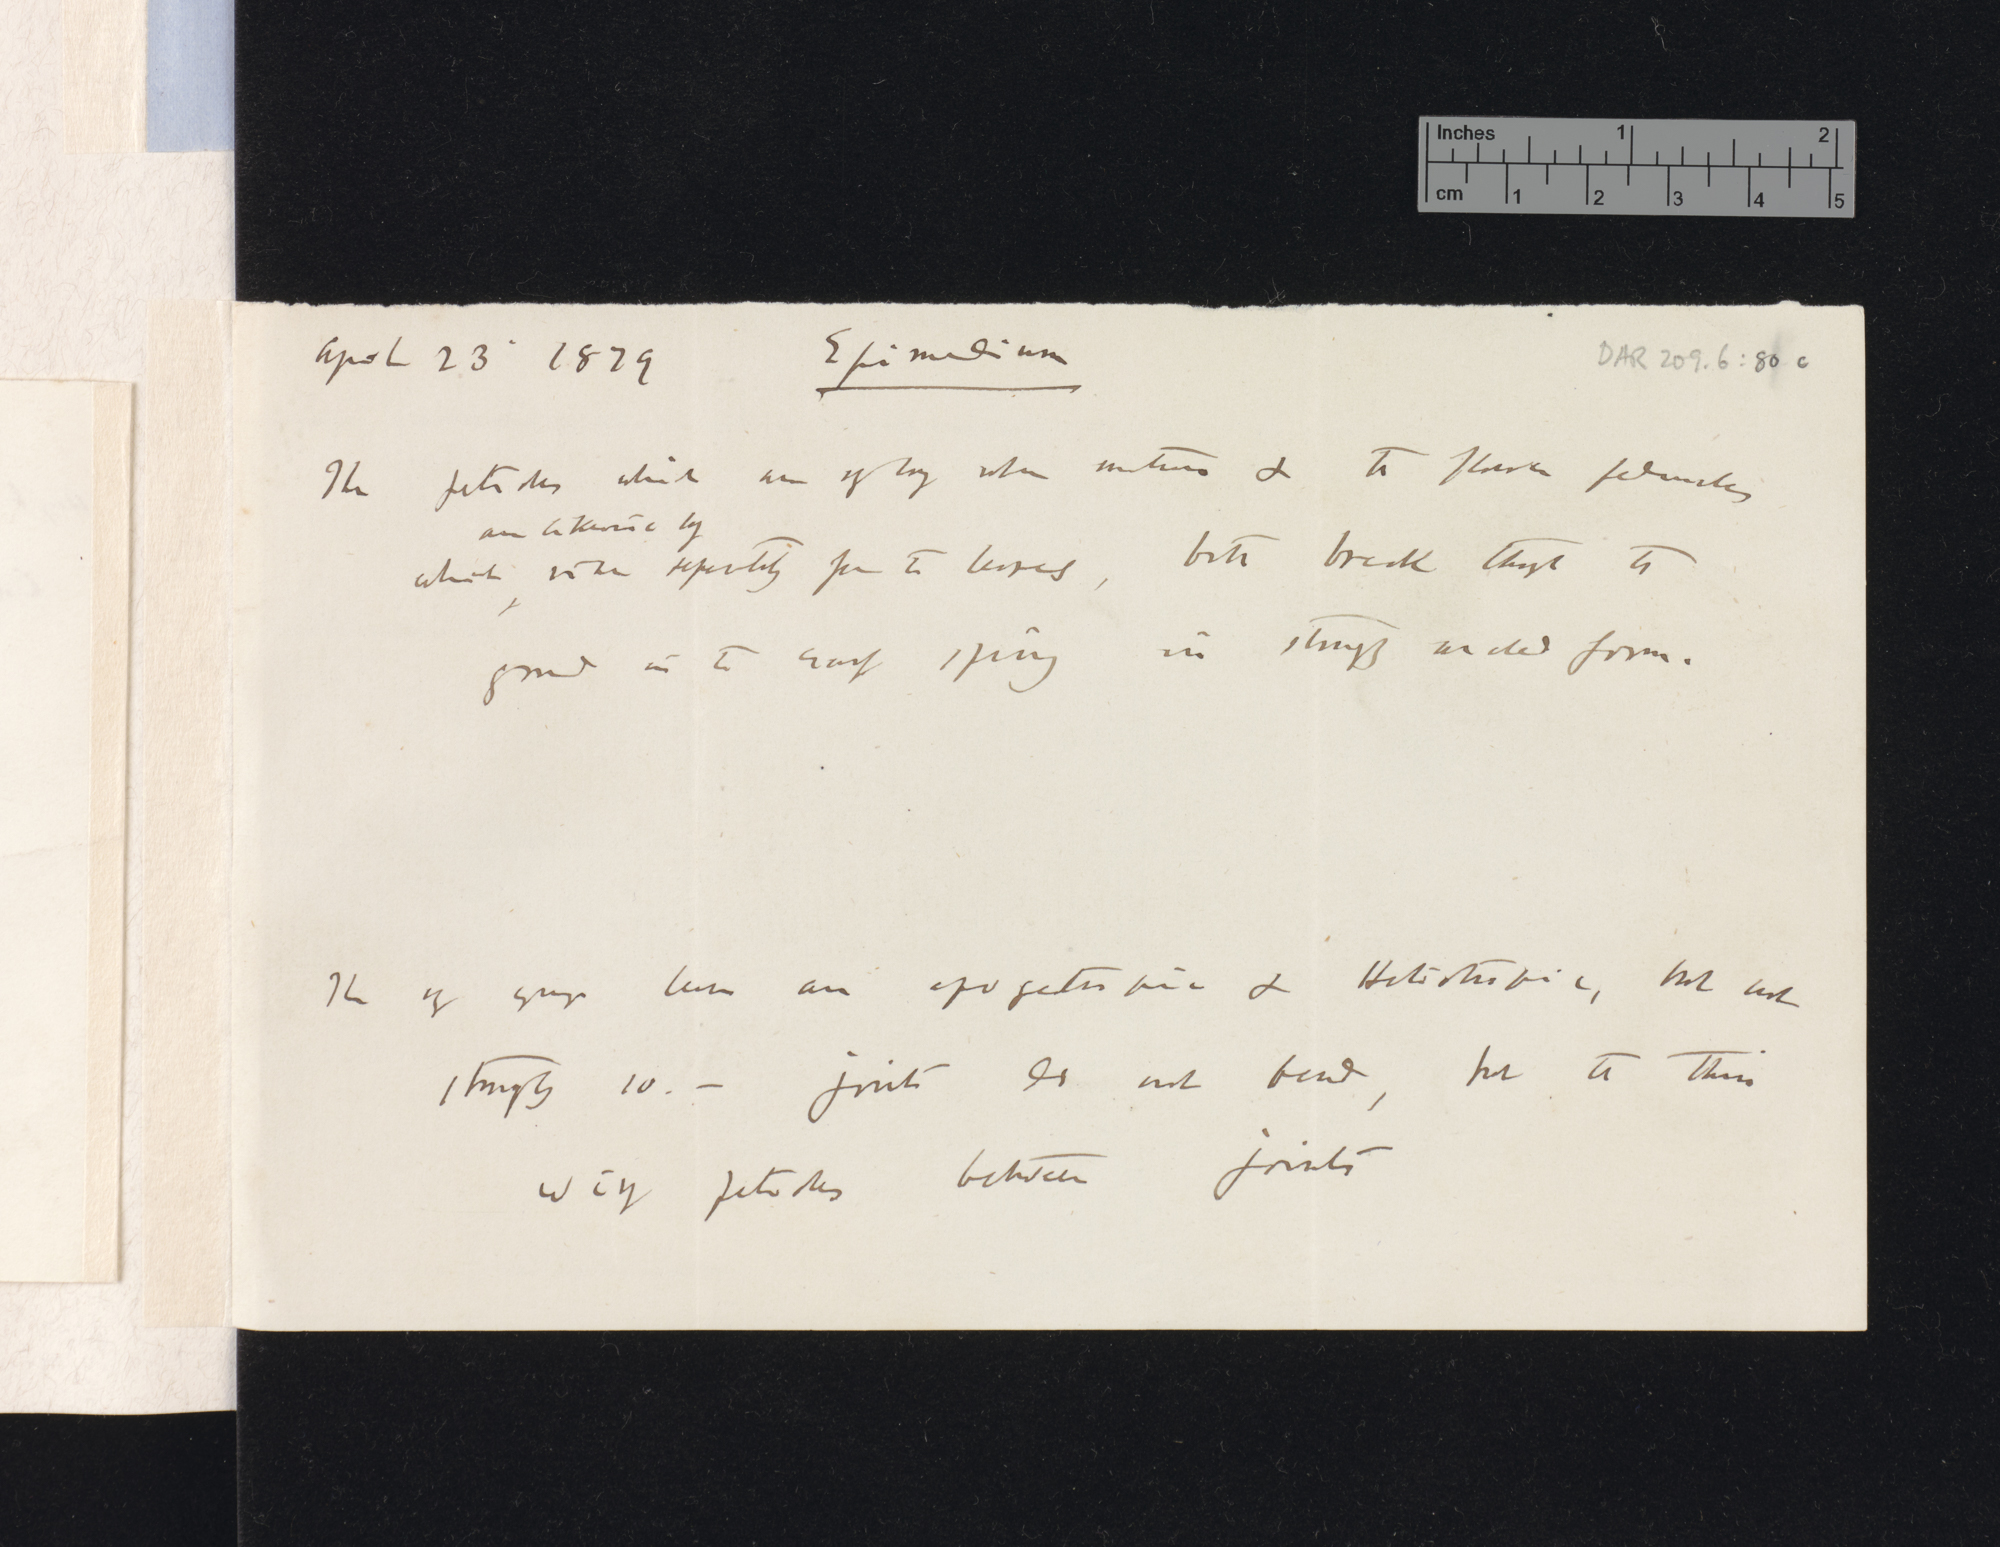 Inches 1 2
cm 1 2 3 4 5
April 23d 1879 Epimedium DAR 209.6:80 c
The petioles which are very long when mature & the flower peduncles
are likewise long
which, rise separately from the leaves, both break through the
ground in the early spring in strongly arched form.
The very young leaves are apogeotropic & Heliotropic, but not
strongly so. — joints do not bend, but the thin
wiry petioles between joints